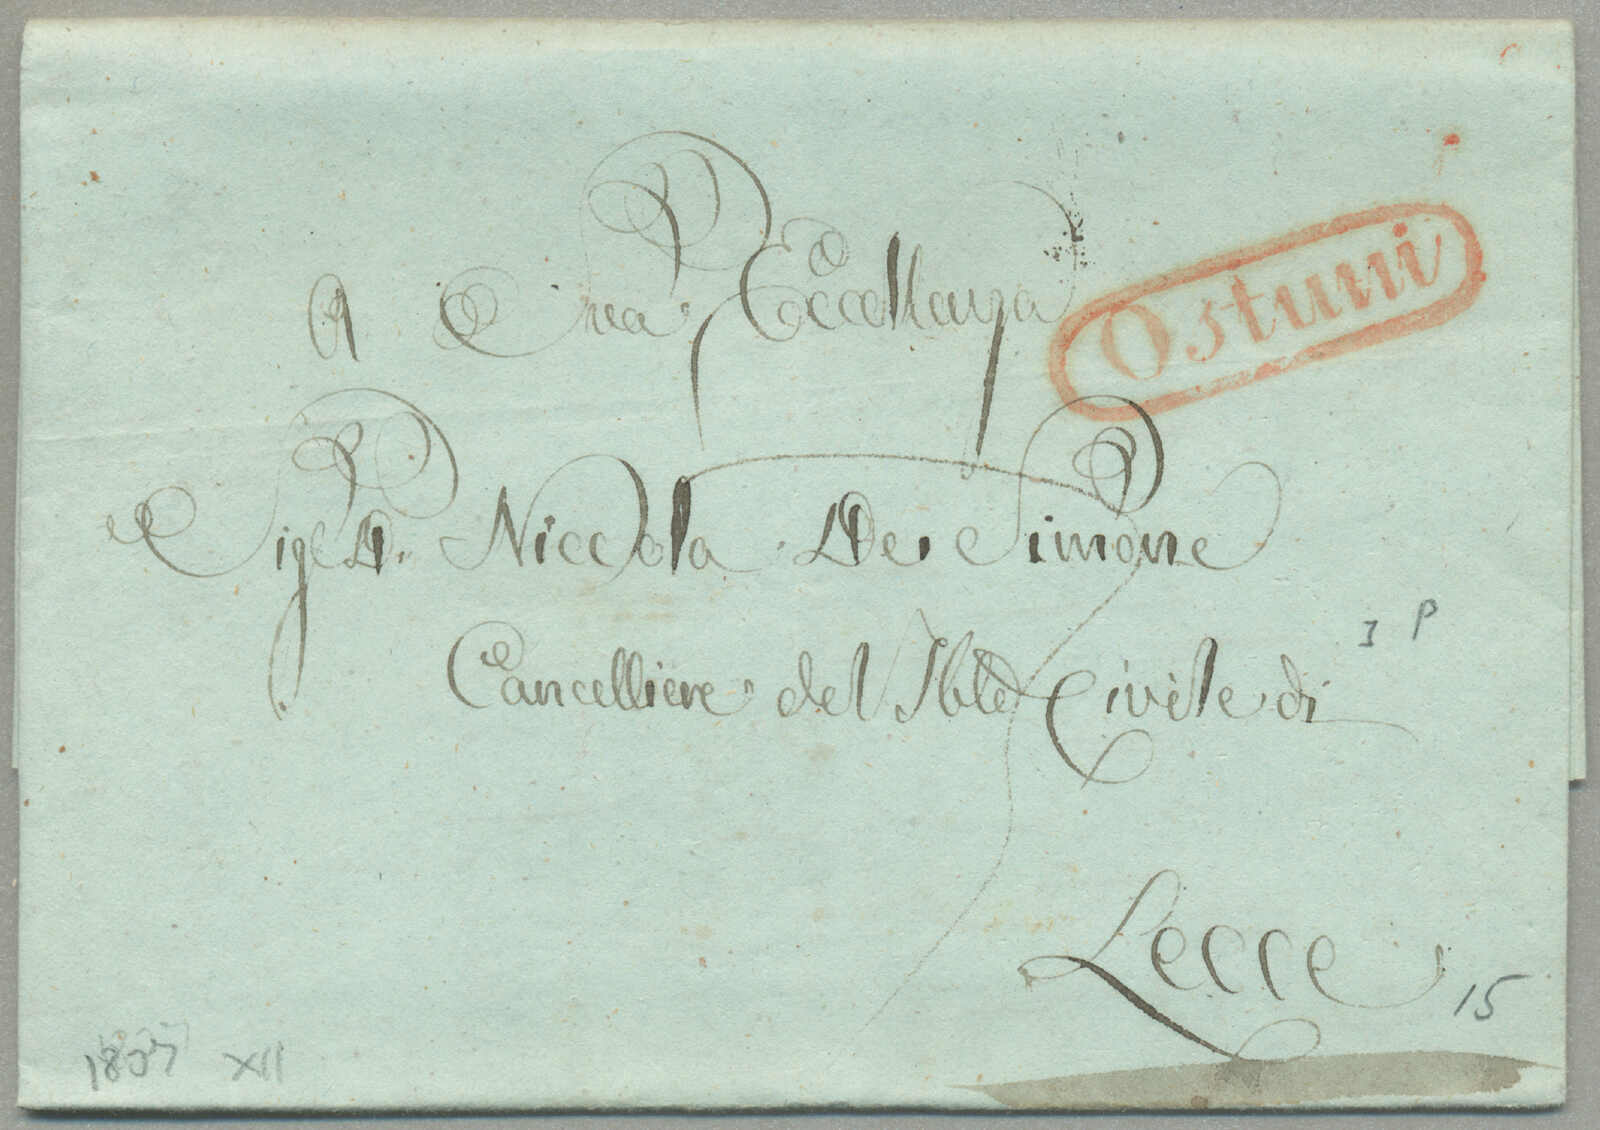 A Sua Eccellenza
Ostuni
Sig.r D. Niccola De Simone
Cancelliere del Tble Civile di
3 P
Lecce
15
XII